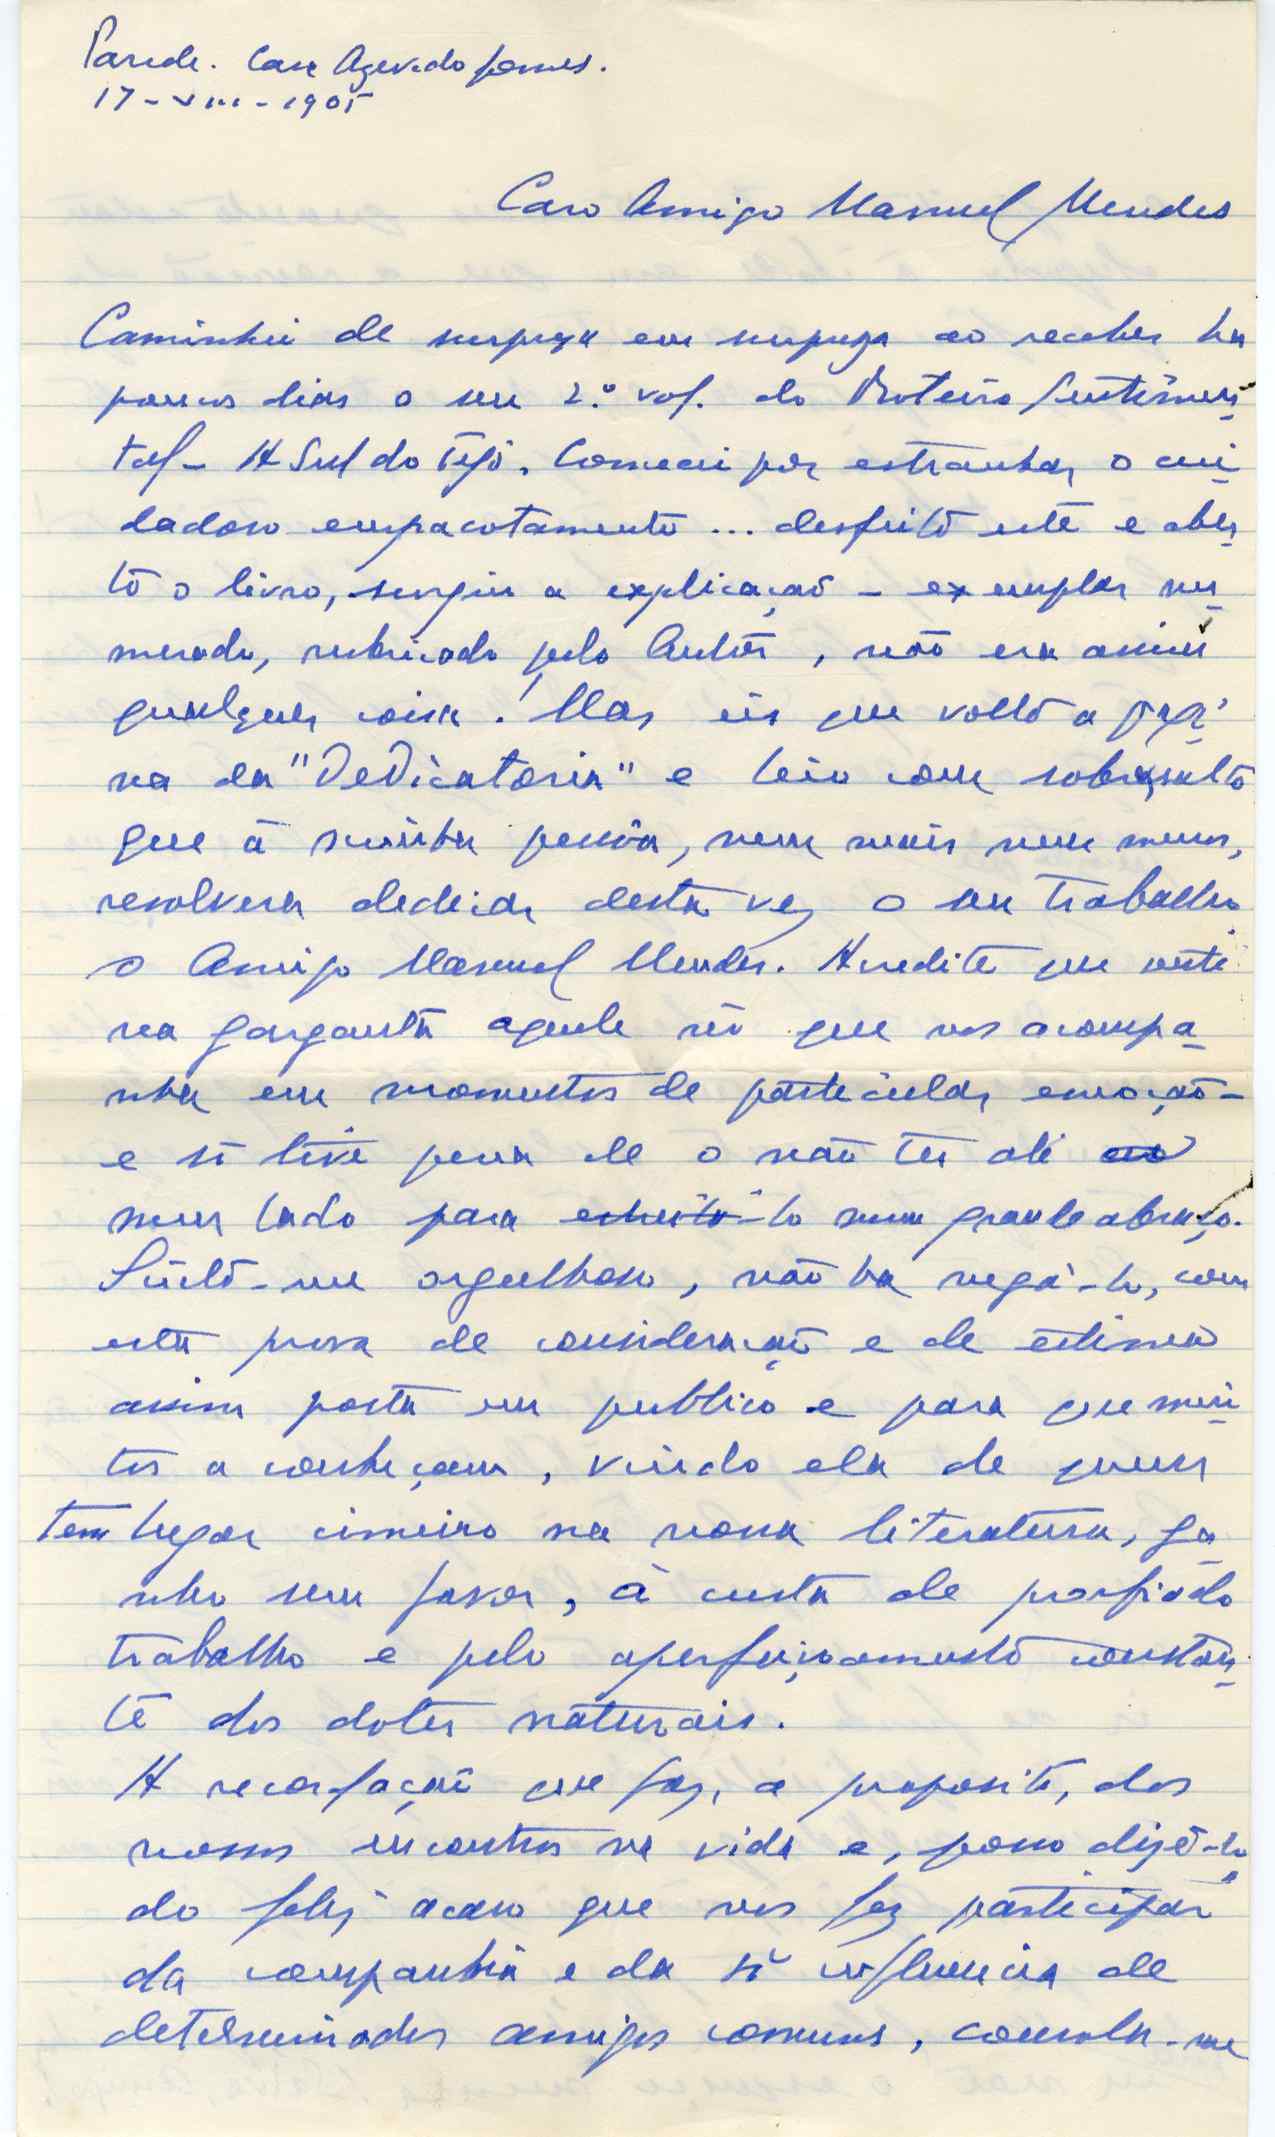 Parede. Casa Azevedo Gomes.
17-VIII-1965
Caro Amigo Manuel Mendes
Caminhei de surpreza em surpreza ao receber ha
poucos dias o seu 2.º vol. do Roteiro Sentimen-
tal - A Sul do Tejo. Comecei por estranhar o cui-
dadoso empacotamento ... desfeito este e aber-
to o livro, surgiu a explicação - exemplar nu-
merado, rubricado pelo Autor, não era assim
qualquer coisa! Mas eis que volto a pági-
na da "Dedicatoria" e leio com sobresalto
que á minha pessôa, nem mais nem menos,
resolvera dedicar desta vez o seu trabalho
o Amigo Manuel Mendes. Acredite que senti
na garganta aquele nó que nos acompa-
nha em momentos de particular emoção -
e só tive pena de o não ter ali ao
meu lado para estreitá-lo num grande abraço.
Sinto-me orgulhoso, não ha negá-lo, com
esta prova de consideração e de estima
assim posta em publico e para que mui-
tos a conheçam, vindo ela de quem
tem lugar cimeiro na nossa literatura, ga-
nho sem favor, à custa de porfiado
trabalho e pelo aperfeiçoamento constan-
te dos dotes naturais.
A recordação que faz, a proposito, dos
nossos encontros na vida e, posso dizê-lo,
do feliz acaso que nos fez participar
da companhia e da sã influencia de
determinados amigos comuns, consola-me